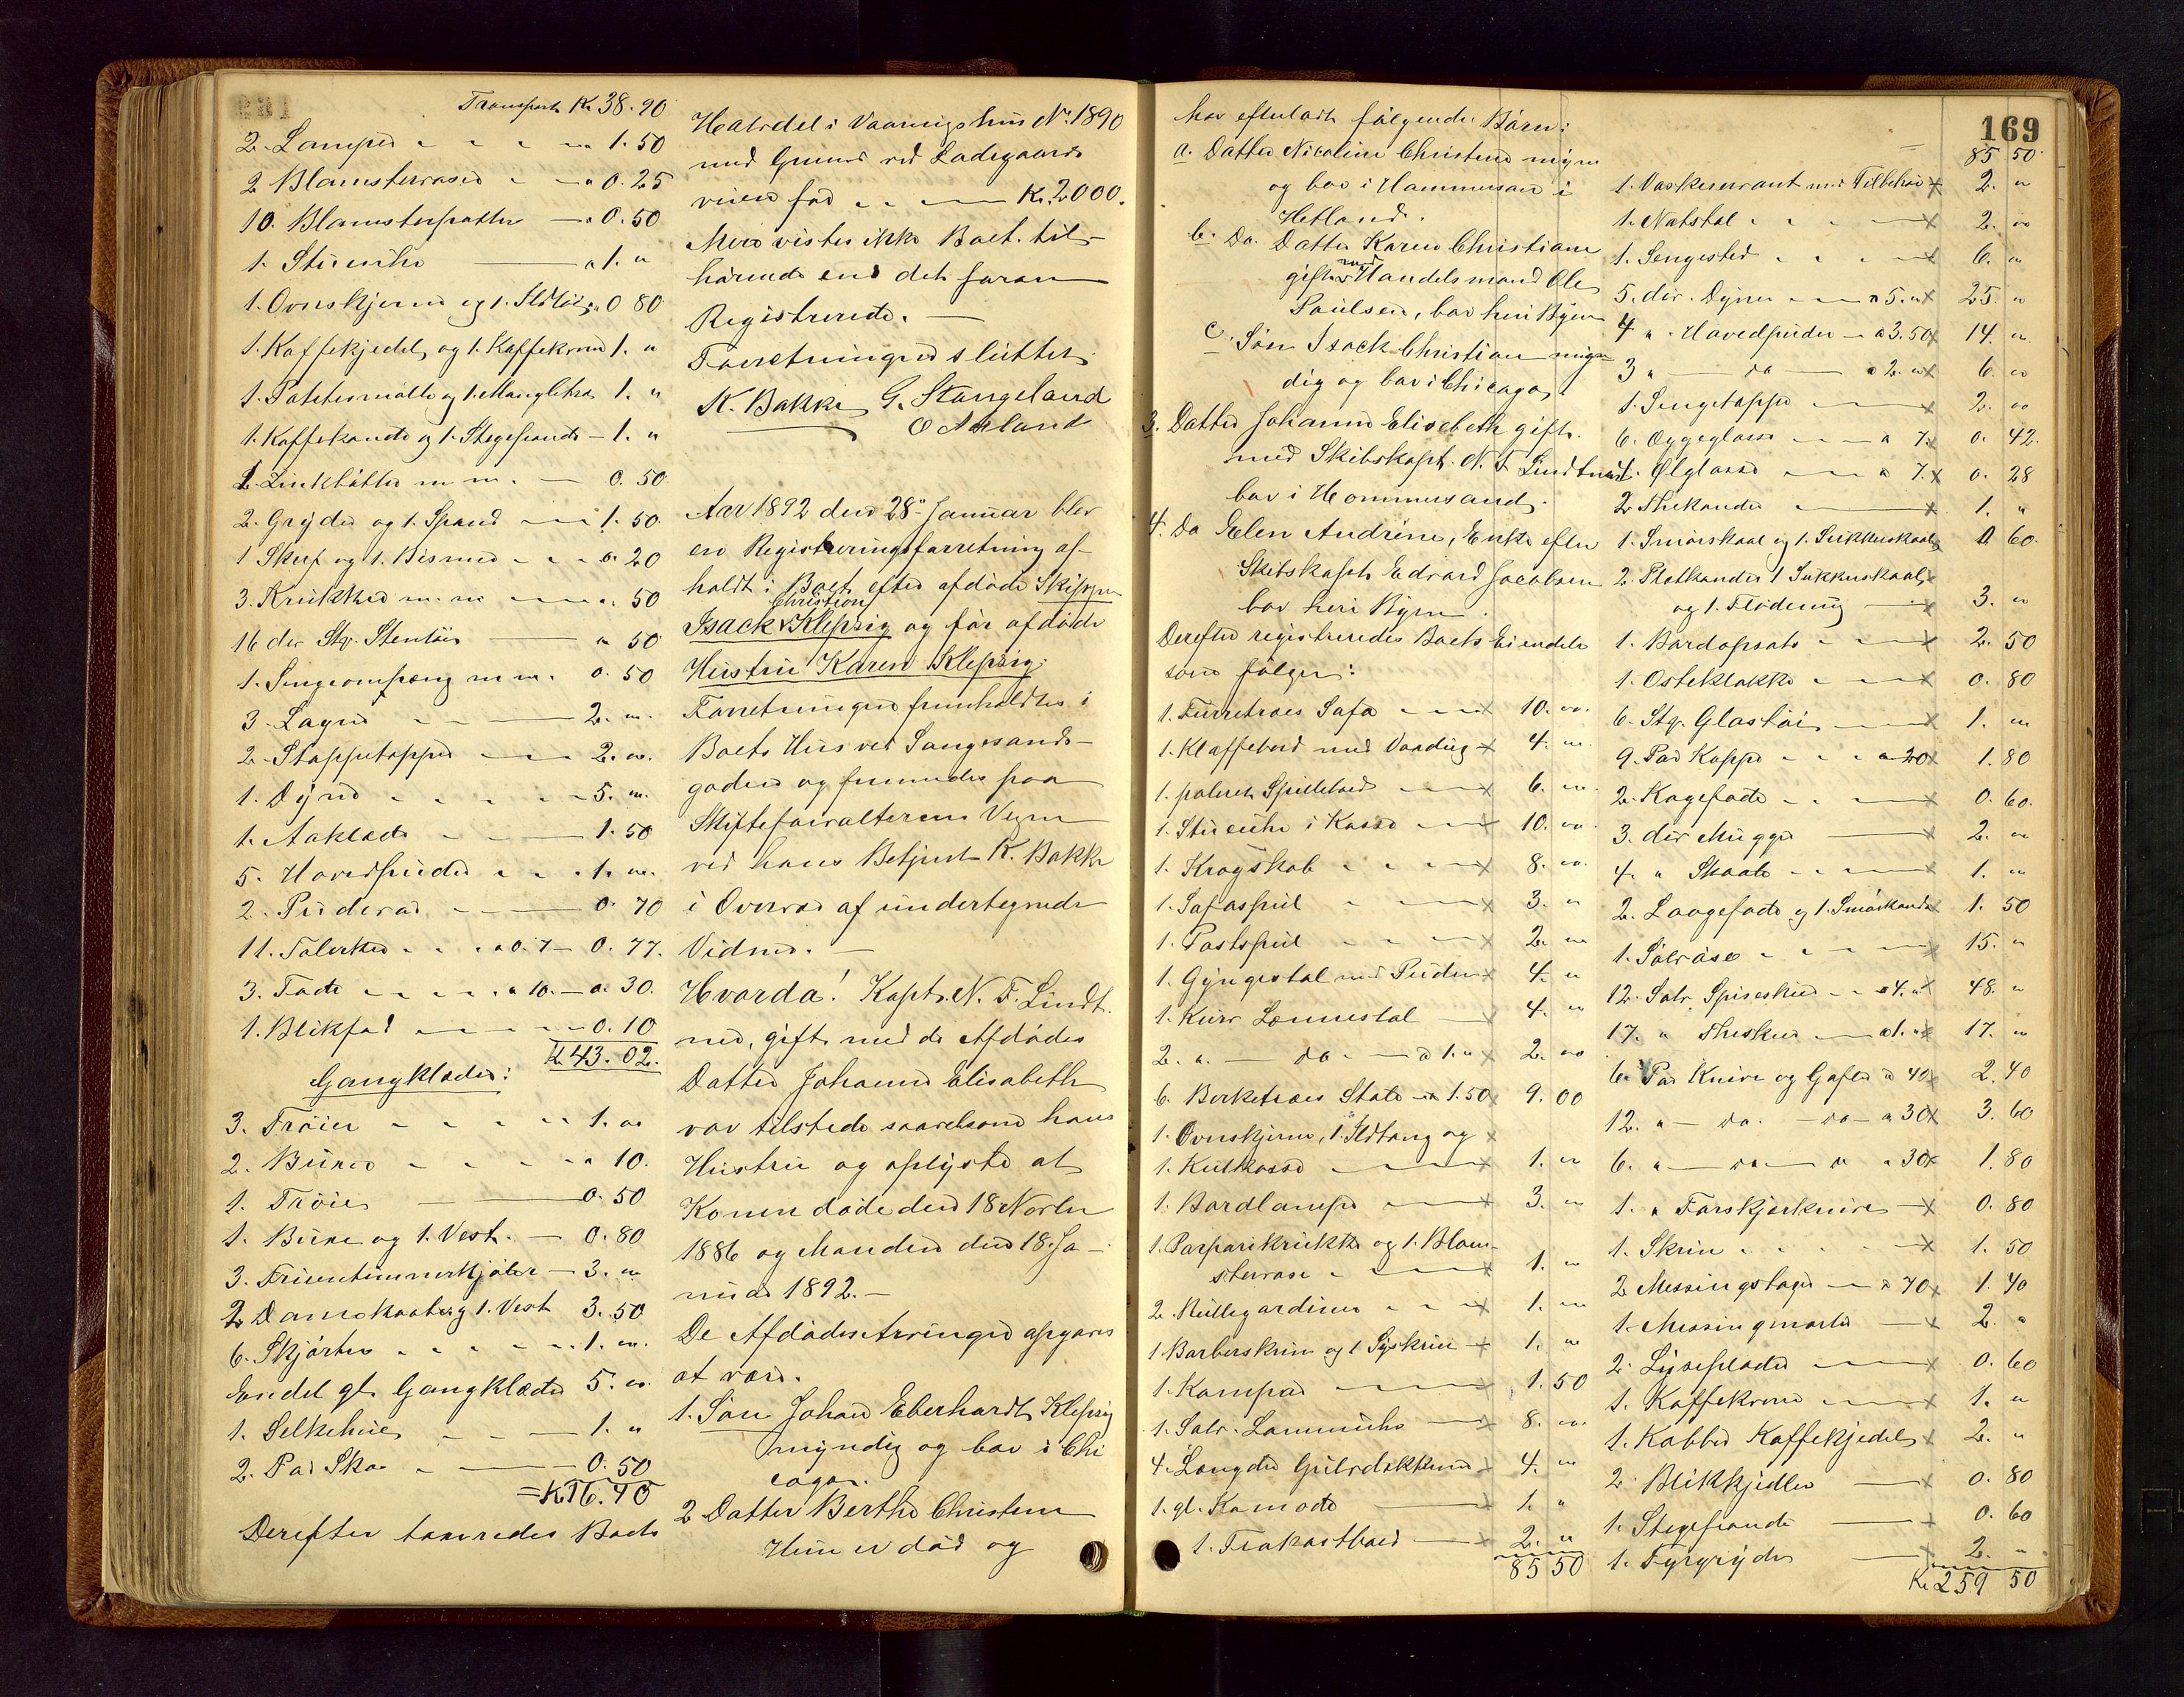 Transport Kr 38.90
2. Lamper 1.50
2 Blomstervaser 0.25
10. Blomsterpotter 0.50
1. Stueuhr 1. "
1. Ovnskjerm og 1. Ildtöi 0 80
1. Kaffekjedel og 1. Kaffekvern 1. "
1. Potetesmölle og 1. Mangletræ 1. "
1. Kaffekande og 1. Stegepande 1. "
2. Zinkbötter m m. 0.50
2. Gryder og 1. Spand 1.50.
1 Skep og 1. Bismer 0.20
3. Krukker m. m 50
16 der Stz. Stentöi " 50
1. Sengeompæng m m. 0.50
3. Lagen 2. "
2. Stoppetepper 2. "
1. Dyne 5. "
1. Aaklæde 1.50
5. Hovedpuder 1. "
2. Pudevar 0.70
11. Tolerker a 0.7 0.77.
3. Fade a 10. 0.30.
1. Blikfad 0.10
Kr 43.02.
Gangklæder:
3. Tröier 1. "
2. Buxer " 10.
1. Tröie 0.50
1. Buxe og 1. Vest. 0.80
3. Fruentimmerkjoler 3. "
2 Damekaaber og 1. Vest 3.50
6. Skjörter 1. "
Endel gl. Gangklæder 5. "
1. Silkehue 1. "
2. Par Sko 0.50
= Kr 16.40
Derefter anmeldes Boets
Halvdel i Vaaningshus No 1890
med Grund ved Ladegaards
veien for Kr. 2000.
Mere vistes ikke Boet til-
hörende end det foran
Registrerede.
Forretningen sluttet.
K. Bakke G. Stangeland
O Aaland
Aar 1892 den 28" Januar blev
en Registreringsforretning af-
holdt i Boet efter afdöde Skipper
Isack Christian Klepzig og för afdöde
Hustru Karen Klepzig.
Forretningen fremholdtes i
Boets Hus ved Sangesands-
gaden og fremmedes paa
Skifteforvalterens Vegne
ved hans Betjent K. Bakke
i Overvær af undertegnede
Vidner.
Hvorda! Kapt. N. F. Lindt-
ner, gift med de Afdödes
Datter Johanne Elisabeth
var tilstede saavelsom hans
Hustru og oplyste at
Konen döde den 18 Novbr
1886 og Manden den 18. Ja-
nuar 1892.
De Afdödes Arvinger opgaves
at være.
1. Sön Johan Eberhardt Klepzig
myndig og bor i Chi
cago.
2 Datter Berthe Christine
Hun er död og
169
har efterladt fölgende Börn:
a. Datter Nicoline Christine myn
og bor i Hommersan i
Hetland.
b. Do. Datter Karen Christiane
gift med Handelsmand Ole
Poulsen, bor heri Byen
c. Sön Isack Christian myn
dig og bor i Chicago
3. Datter Johanne Elisebeth gift.
med Skibskapt. N. F. Lindtner
bor i Hommersand.
4. Do Elen Andrine, Enke efter
Skibskapt. Edvard Jacobsen
bor heri Byen.
Derefter registreredes Boets Eiendele
som fölger:
1. Furretræes Sofa x 10. "
1. Klaffebord med Voxdug x 4. "
1. poleret Spillebord x 6. "
1. Stueuhr i Kasse x 10. "
1. Krogskab x 8. "
1. Sofaspeil x 3. "
1. Postspeil x 2. "
1. Gyngestol med Puder x 4. "
1. Kurv Lænnestol x 4. "
2. " do a 1. " x 2. "
6. Birketræes Stole a 1.50 x 9.00
1. Ovnskjerm, 1. Ildtang og x
1. Kulkasse x 1. "
1. Bordlampe x 3. "
1. Parparikrukke og 1. Blom-
stervase x 1. "
2. Rullegardiner x 1. "
1 Barberskrin og 1 Syskrin x 1. "
1. Kompas 1.50
1. Sölv. Lommeuhr x 8. "
4. Længder Gulvdækken x 4. "
1. gl. Komode x 1. "
1. Frokostbord x 2. "
85 50
85 50
1. Vaskeservant med Tilbehör x 2. "
1. Natstol x 2. "
1. Sengested x 6. "
5. div. Dyner a 5. " x 25. "
4 " Hovedpuder a 3.50 x 14. "
3 " do a 2. " x 6. "
1. Sengeteppe x 2. "
6. Æggeglasse a 7. x 0. 42.
4. Ölglasse a 7. x 0. 28
2 Thekander x 1. "
1. Smörskaal og 1. Sukkerskaal x 0 60.
2. Pletkander 1 Sukkerskaal x
og 1. Flödemug 3. "
1. Bordopsats x 2. 50
1. Osteklokke x 0. 80
6. Stz. Glastöi x 1. "
9. Par Kopper a 20 x 1. 80
2. Kagefade x 0. 60.
3. div Mugger 2. "
4. " Skaale x 1. "
2. Laagefade og 1. Smörkande x 1. 50
1. Sölvöse x 15. "
12. Sölv. Spiseskeer a 4. " x 48. "
17. " Theskeer a 1. " x 17. "
6. Par Knive og Gafler a 40 x 2.40
12. " do. do a 30 x 3. 60
6. " do " a 30 x 1.80
1. " Forskjærkniv x 0. 80
1. Skrin x 1. 50
2 Messingstager a 70 x 1. 40
1. Messingmorter x 2. "
2. Lyseplader x 0. 60
1. Kaffekvern x 1. "
1. Kobber Kaffekjedel x 2. "
2. Blikkjedler x 0. 80
1. Stegepande x 0. 60
1. Fyrgryde x 2. "
Kr 259 50